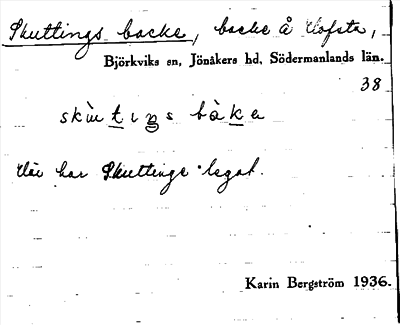 Skuttings backe, backe å Hofsta,
Björkviks sn, Jönåkers hd, Södermanlands län.
38
Här har Skuttinge legat.
Karin Bergström 1936.